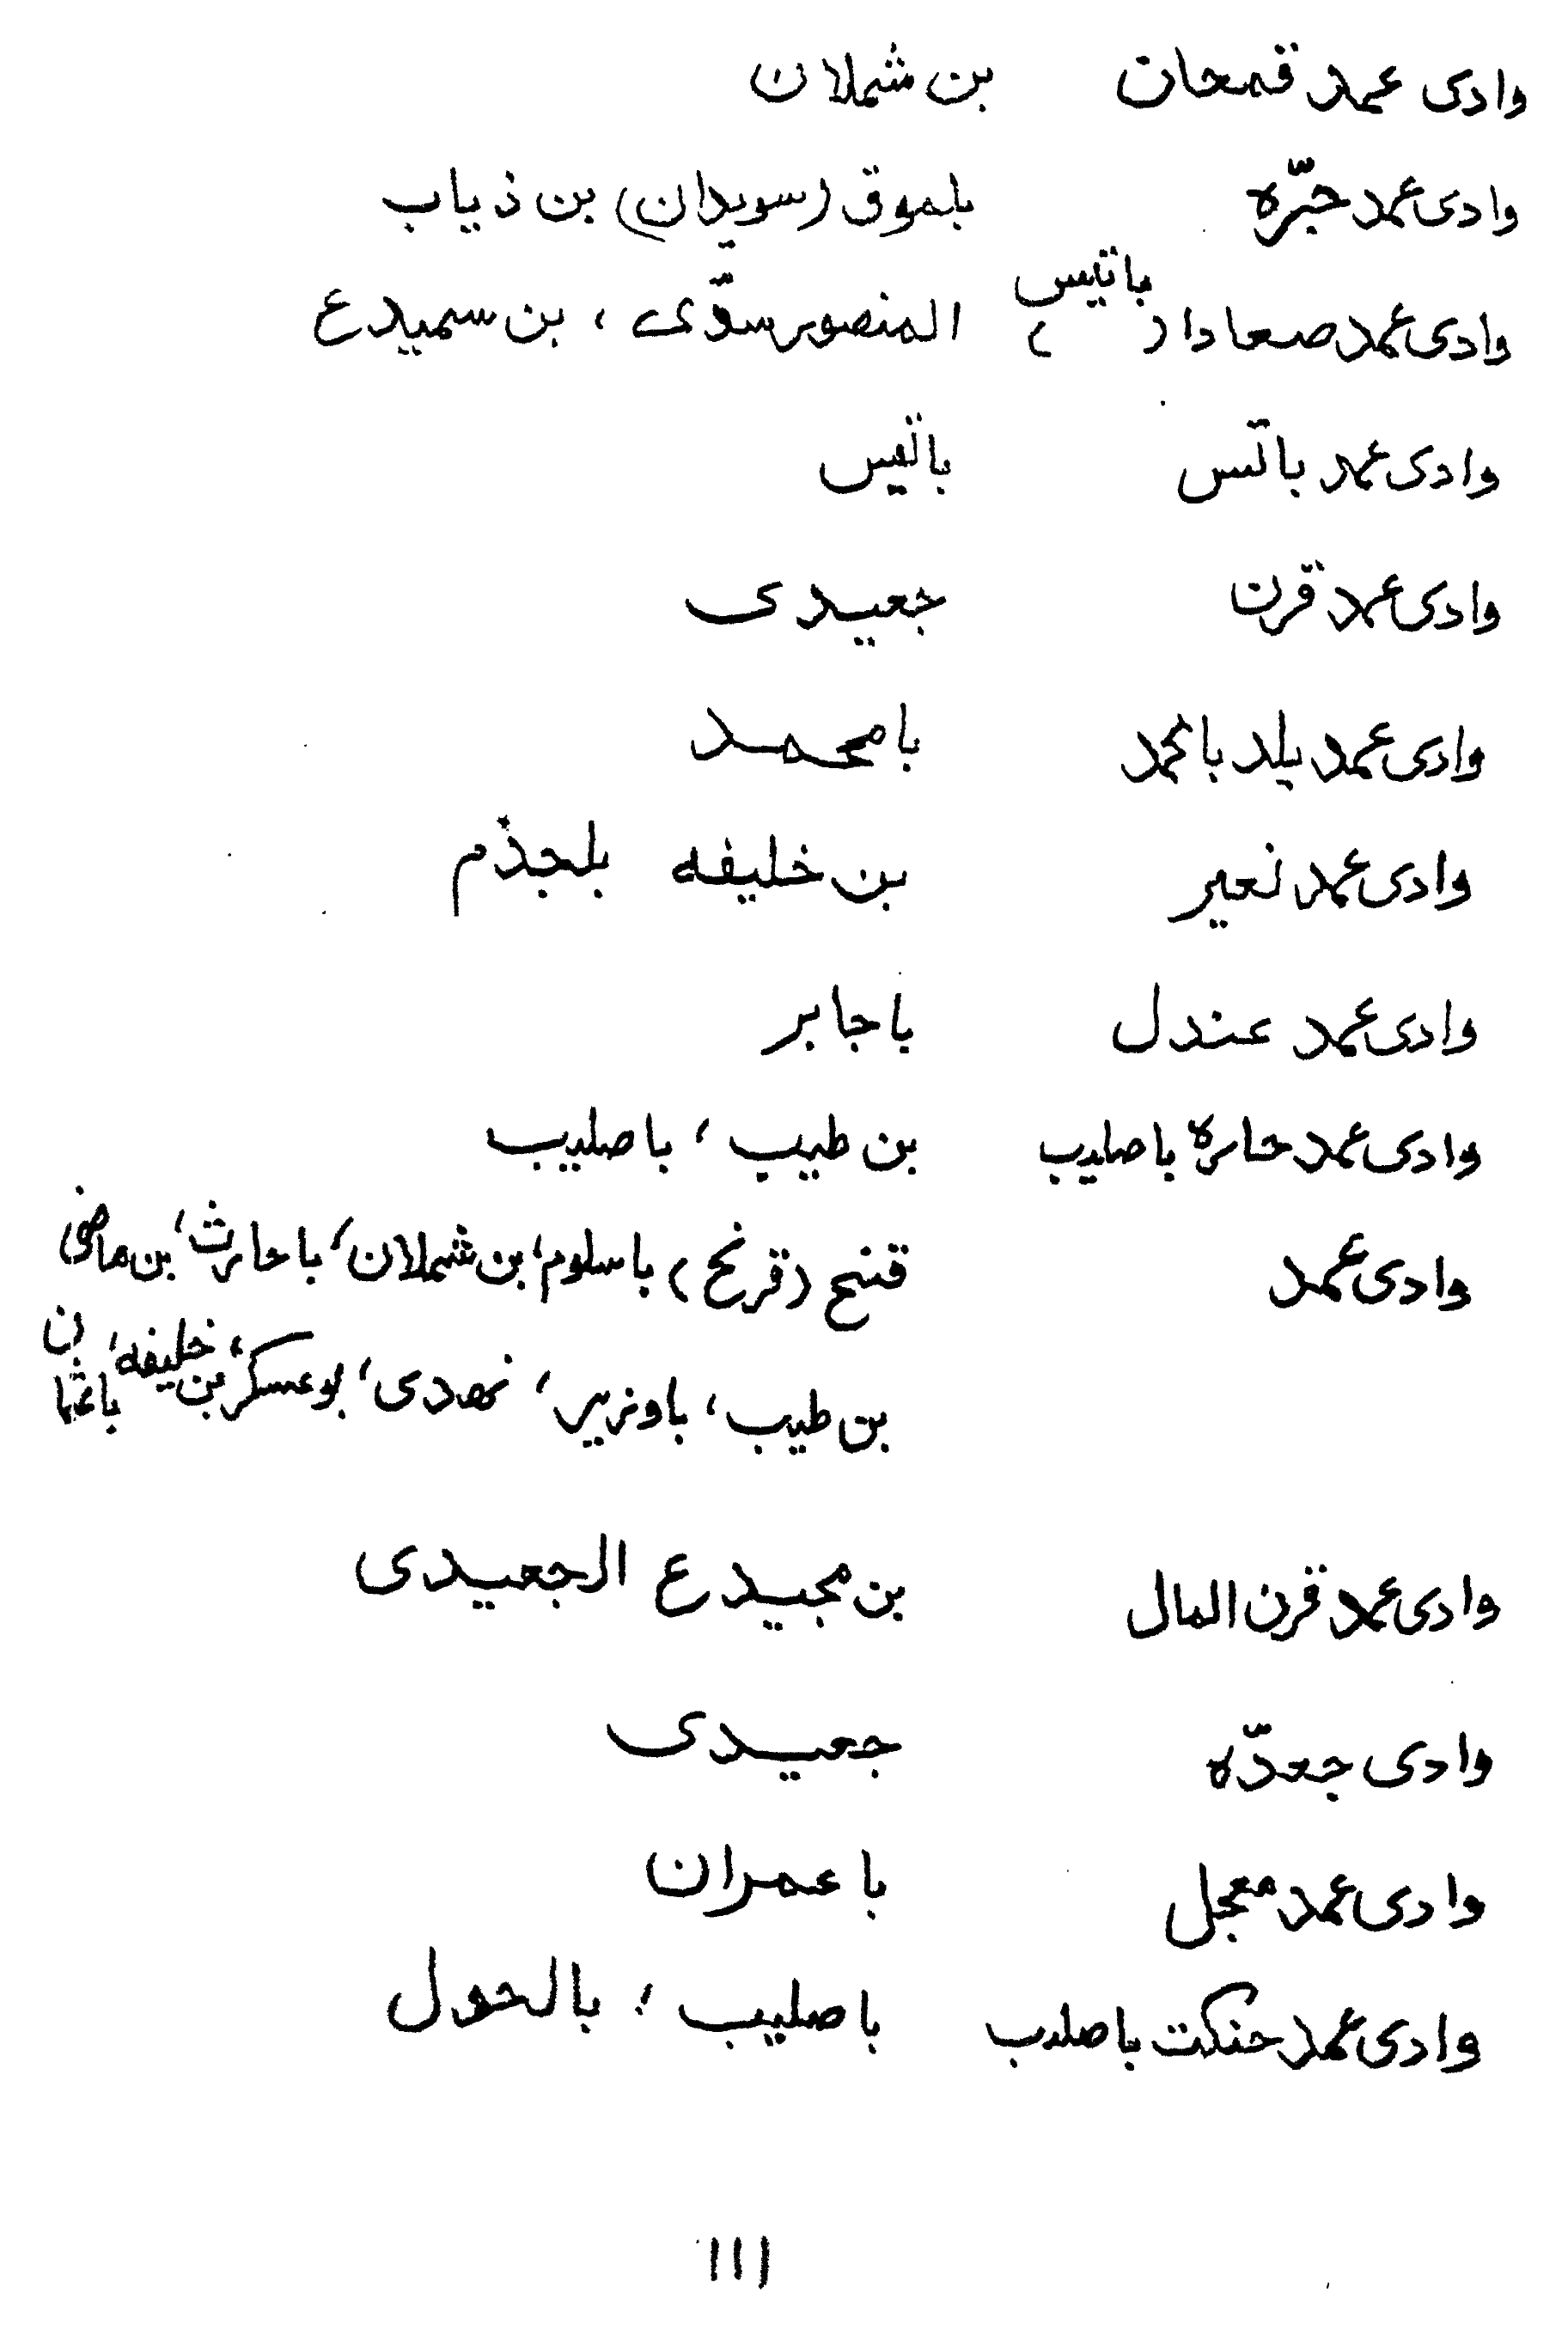 وادى عمد قمحان بن شملان
وادى عمد حبّره بلموق (سويدان) بن ذياب
وادى عمد صعادا (باتيس) المنصور سوّى ، بن سميدع
وادى عمد باتيس باتيس
وادى عمد قرن جعيدى
وادى عمد بلد بامحمد بامحمد
وادى عمد نعير بن خليفه بلجذم
وادى عمد عندل باجابر
وادى عمد حاره باصليب بن طيب ، باصليب
وادى عمد (قرنح) باسلوم، بن شملان، باحارث، بن ماضى
بن طيب ، باوزير ، نهدى ، بوعسكر، بن خليفه، باعثمان
وادى عمد قرن المال بن مجيدع الجعيدى
وادى جعدّه جعيدى
وادى عمد معجل باعمران
وادى عمد حنكت باصليب باصليب ، بالحول
١١١